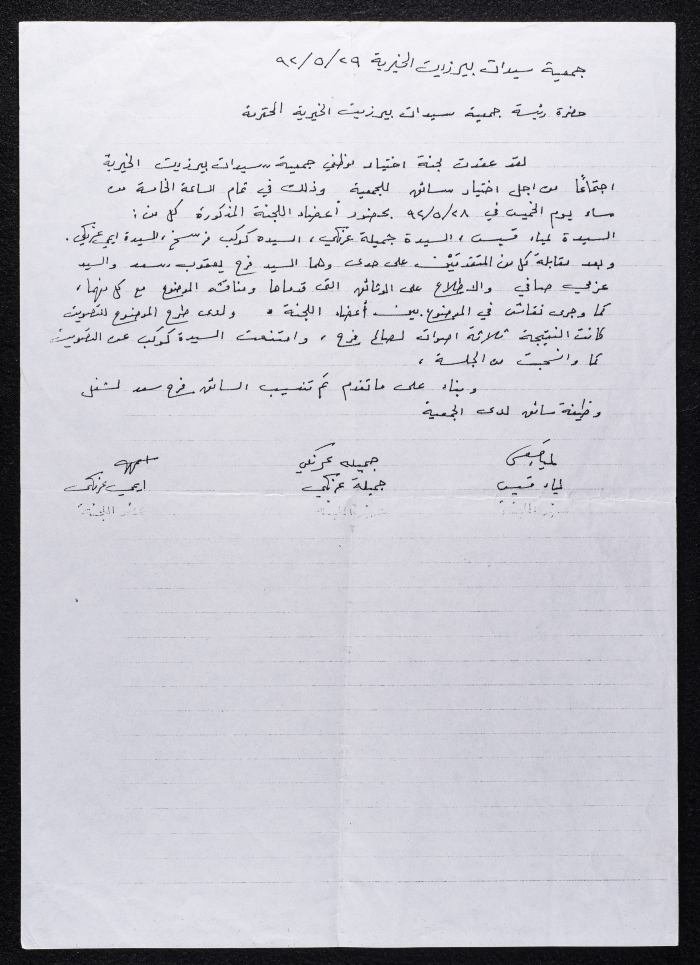 جمعية سيدات بيرزيت الخيرية ٩٢/٥/٢٩
حضرة رئيسة جمعية سيدات بيرزيت الخيرية المحترمة
لقد عقدت لجنة اختيار موظفي جمعية سيدات بيرزيت الخيرية
اجتماعًا من اجل اختيار سائق للجمعية وذلك في تمام الساعة الخامسة من
مساء يوم الخميس في ٩٢/٥/٢٨ بحضور أعضاء اللجنة المذكورة كل من :
السيدة لمياء قسيس ، السيدة جميلة عرنكي ، السيدة كوكب فرسخ ، السيدة ايمي عرنكي .
وبعد مقابلة كل من المتقدمين على حدى وهما السيد فرح يعقوب سعد والسيد
عزمي صافي والاطلاع على الوثائق التي قدماها ومناقشة الموضوع مع كل منهما ،
كما وجرى نقاش في الموضوع بين أعضاء اللجنة . ولدى طرح الموضوع للتصويت
كانت النتيجة ثلاثة اصوات لصالح فرح ، وامتنعت السيدة كوكب عن التصويت
كما وانسحبت من الجلسة ،
وبناء على ما تقدم تم تنسيب السائق فرح سعد لشغل
وظيفة سائق لدى الجمعية
لمياء قسيس جميله عرنكي
لمياء قسيس جميلة عرنكي ايمي عرنكي
اللجنة